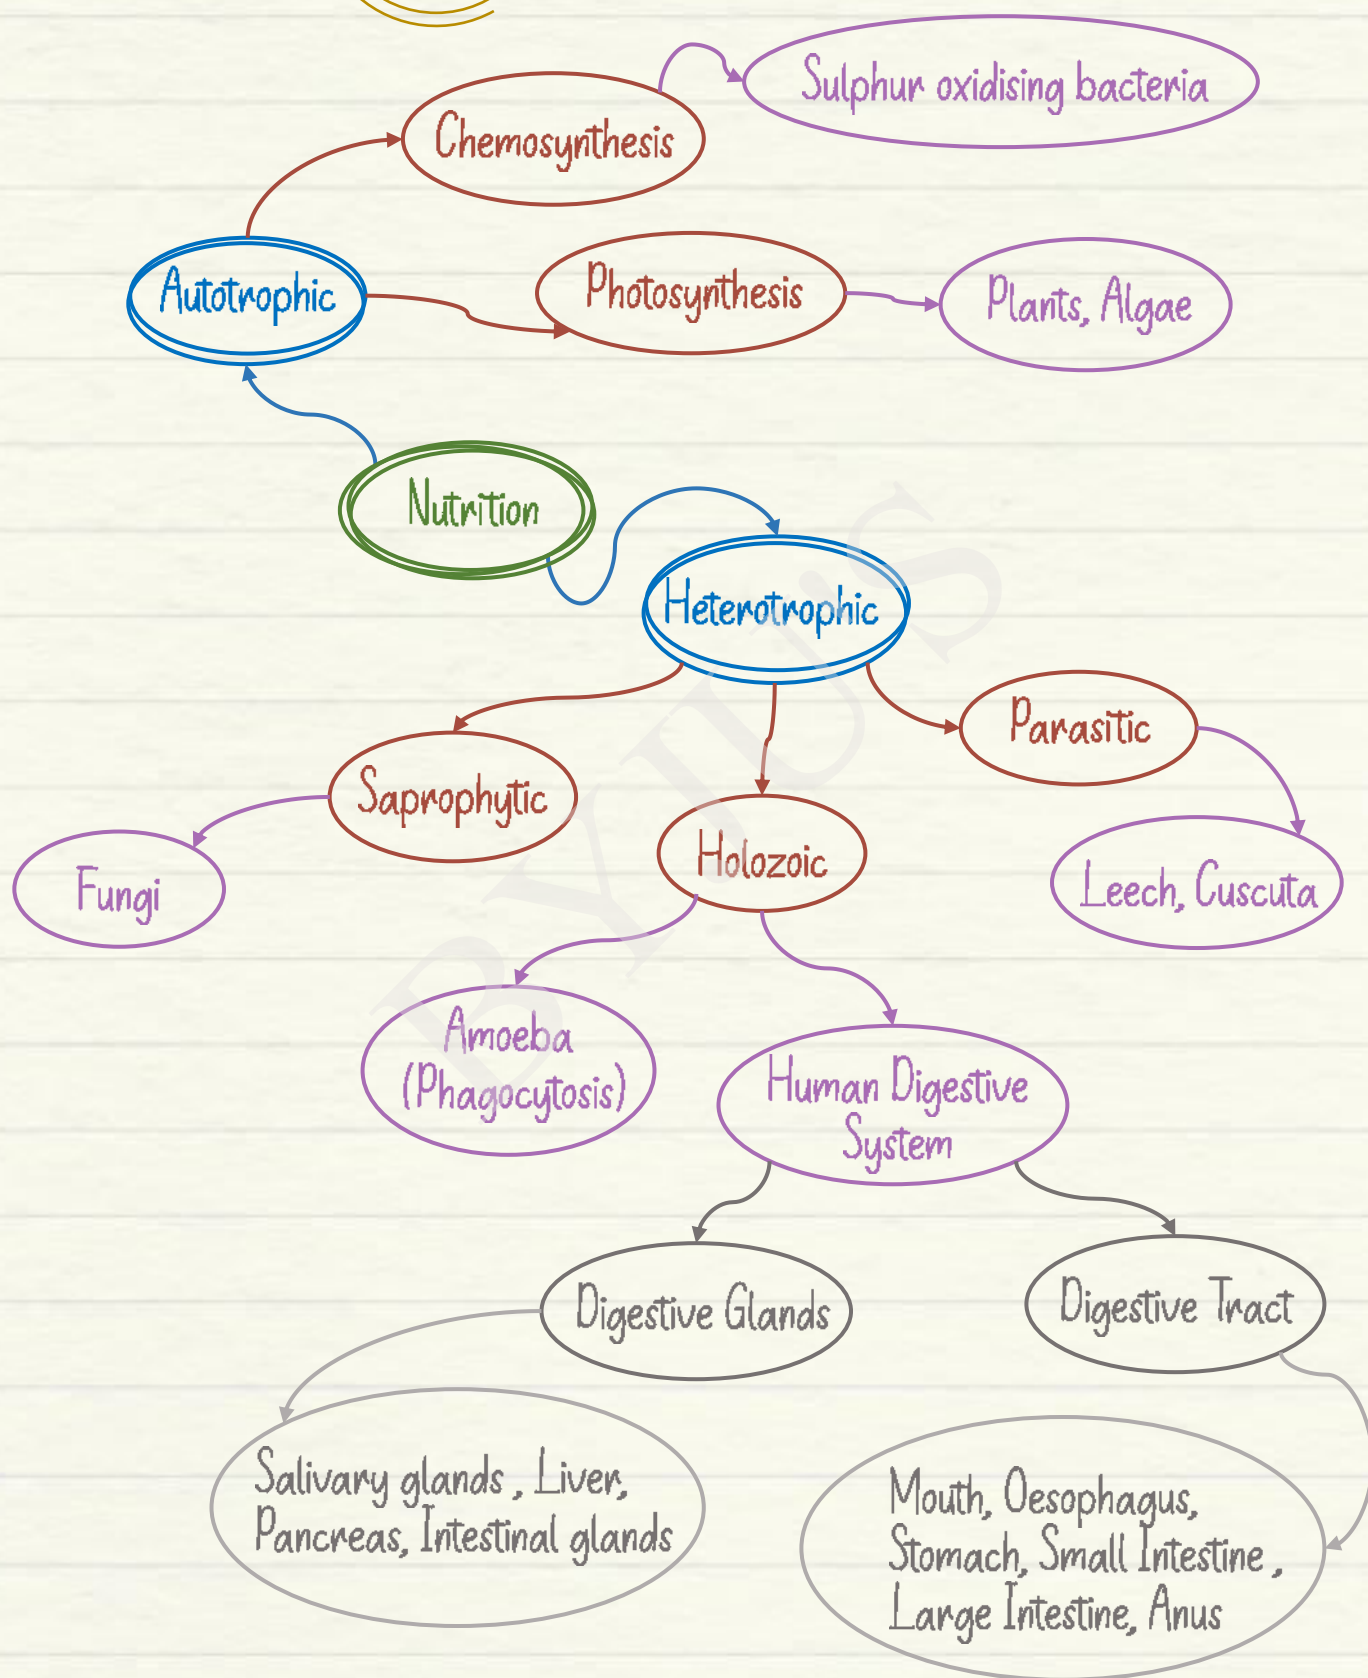 Sulphur oxidising bacteria
Chemosynthesis
Autotrophic
Photosynthesis
Plants, Algae
Nutrition
Heterotrophic
Parasitic
Saprophytic
Holozoic
Leech, Cuscuta
Fungi
Amoeba
(Phagocytosis)
Human Digestive
System
Digestive Glands
Digestive Tract
Salivary glands , Liver,
Pancreas, Intestinal glands
Mouth, Oesophagus,
Stomach, Small Intestine ,
Large Intestine, Anus
BYJU'S